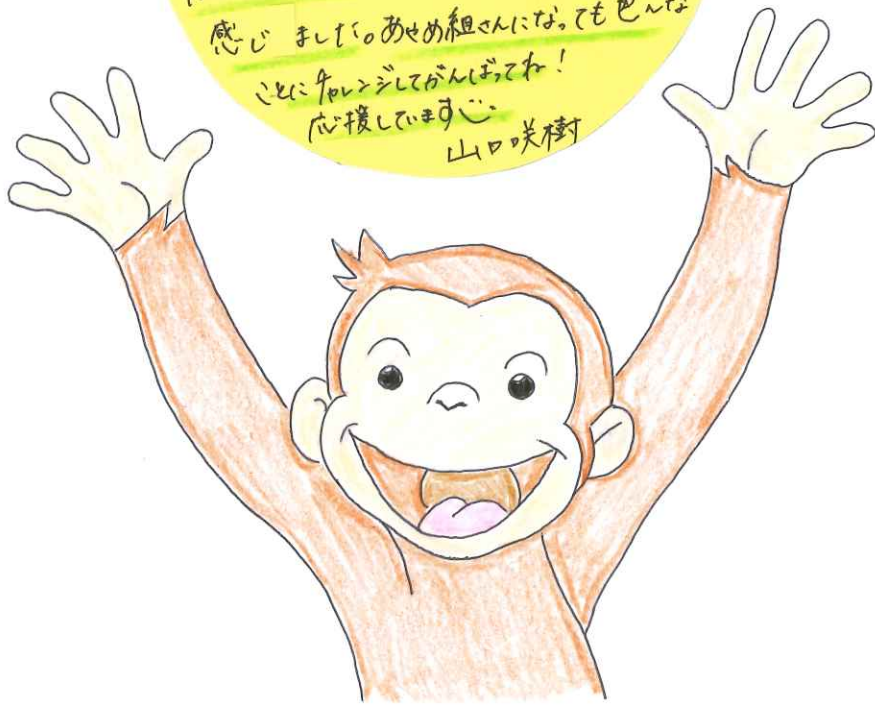 感じ ました。あやめ組さんになっても色んな
ことにチャレンジしてがんばってね！
応援しています
山口咲樹